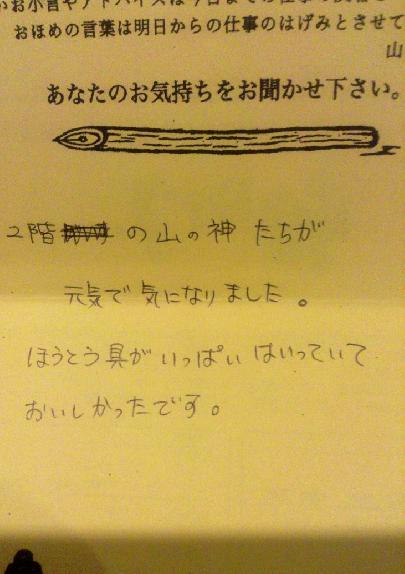 お小言やアドバイスは今日までの仕事の反省と
おほめの言葉は明日からの仕事のはげみとさせて
山
あなたのお気持ちをお聞かせ下さい。
2階 の山の神たちが
元気で気になりました。
ほうとう具がいっぱいはいっていて
おいしかったです。